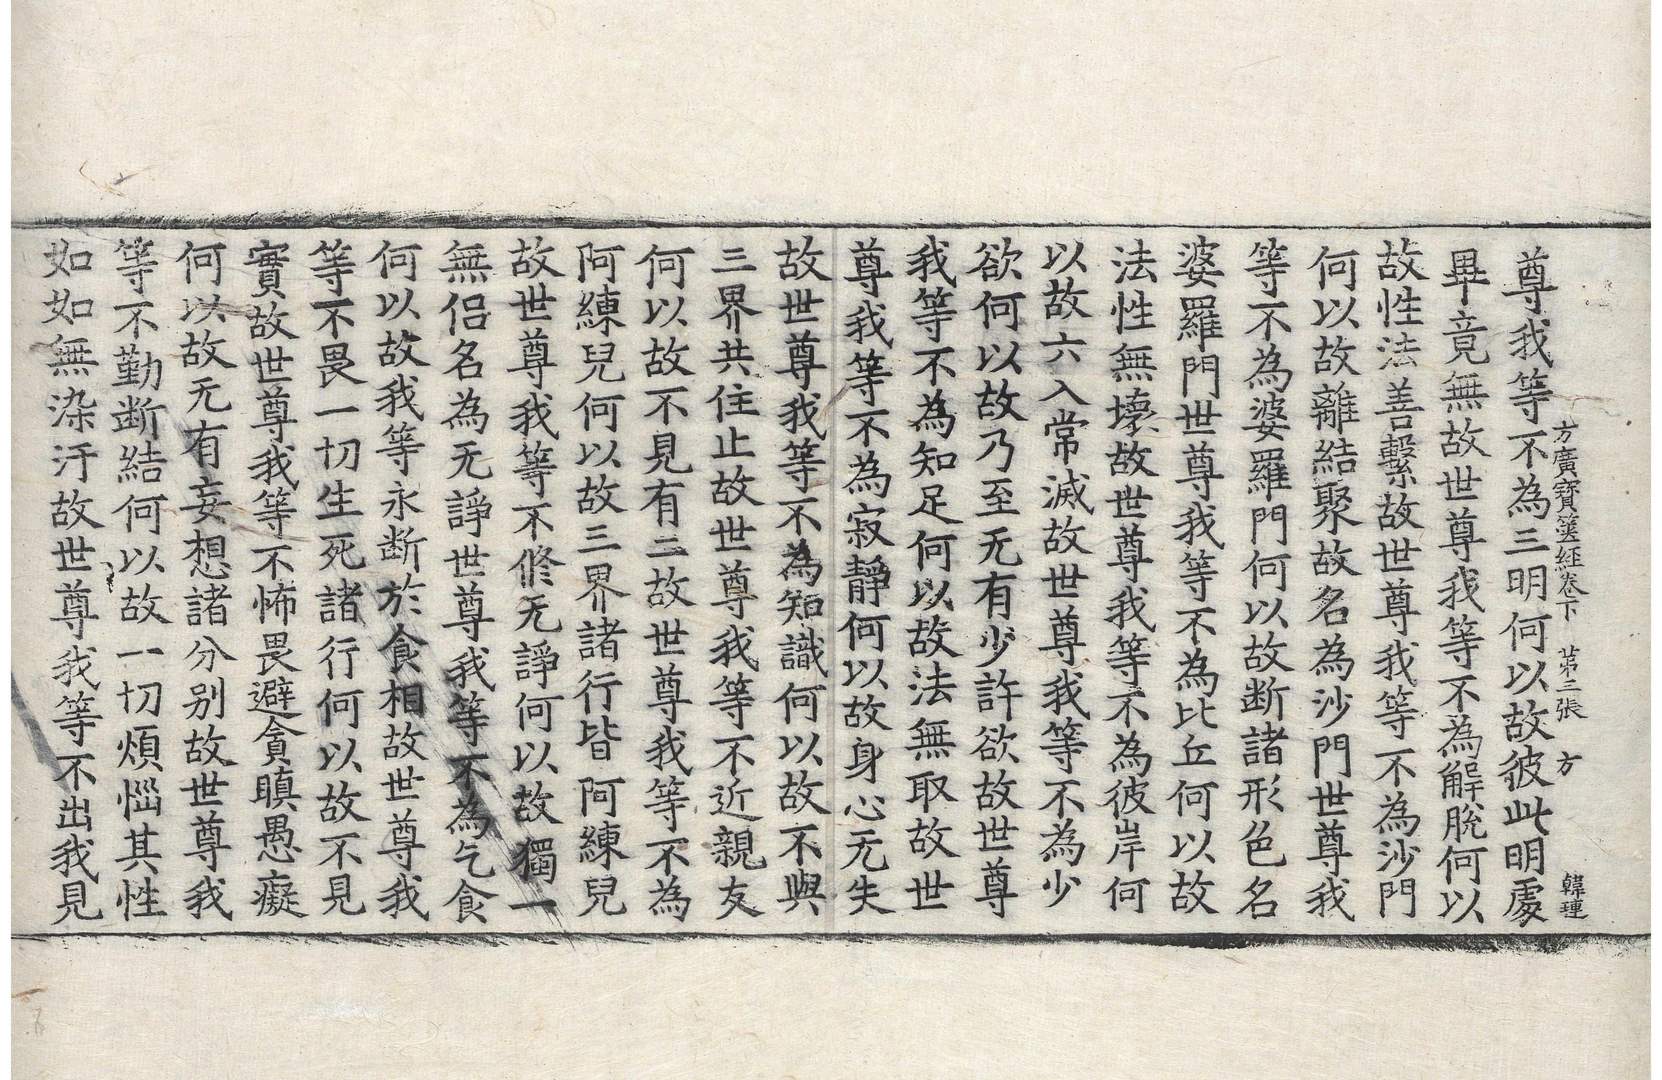 方廣寶篋經卷下 第三張 方 韓璉
尊我等不為三明何以故彼此明處
畢竟無故世尊我等不為解脫何以
故性法善繫故世尊我等不為沙門
何以故離結聚故名為沙門世尊我
等不為婆羅門何以故断諸形色名
婆羅門世尊我等不為比丘何以故
法性無壞故世尊我等不為彼岸何
以故六入常滅故世尊我等不為少
欲何以故乃至无有少許欲故世尊
我等不為知足何以故法無取故世
尊我等不為寂靜何以故身心无失
故世尊我等不為知識何以故不與
三界共住止故世尊我等不近親友
何以故不見有二故世尊我等不為
阿練兒何以故三界諸行皆阿練兒
故世尊我等不修无諍何以故獨一
無侶名為无諍世尊我等不為乞食
何以故我等永断於食相故世尊我
等不畏一切生死諸行何以故不見
實故世尊我等不怖畏避貪瞋愚癡
何以故无有妄想諸分别故世尊我
等不勤断結何以故一切煩惱其性
如如無染汙故世尊我等不出我見